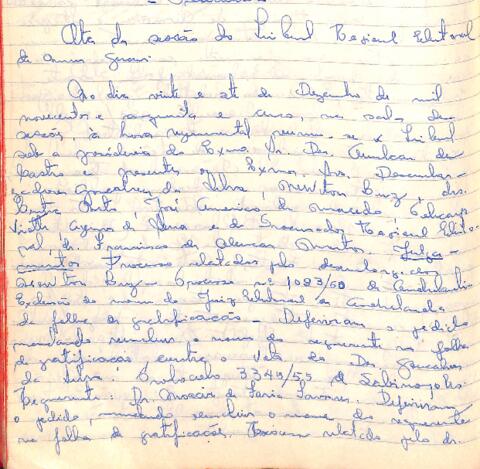 Ata da sessão do Tribunal Regional Eleitoral
de Minas Gerais.
Ao dia vinte e sete de Dezembro de mil
novecentos e cinquenta e cinco, na sala das
sessões, à hora regimental, reuniu-se o Tribunal
sob a presidência do Exmo. Sr. Des. Amilcar de
Castro e presentes os Exmos. Srs. Desembar-
gadores Gonçalves da Silva, Newton Luz, drs.
Costa Porto, José Americo de Macedo,
e do Procurador Regional Eleito-
ral, dr. Francisco de Alencar. Julga-
mentos Processo relatados pelo desembargador
Newton Luz - Processo nº 1083/50 de
Exclusão do nome do Juiz Eleitoral de
da folha de gratificação - Deferiram o pedido
mandando reincluir o nome do requerente na folha
de gratificação, contra o voto do Des. Gonçalves
da Silva. Protocolo 3345/55, de Sabinopolis.
Requerente: Dr. Moacir de Faria Tavares. Deferiram
o pedido, mandando reincluir o nome do requerente
na folha de gratificação. Processo relatado pelo dr.